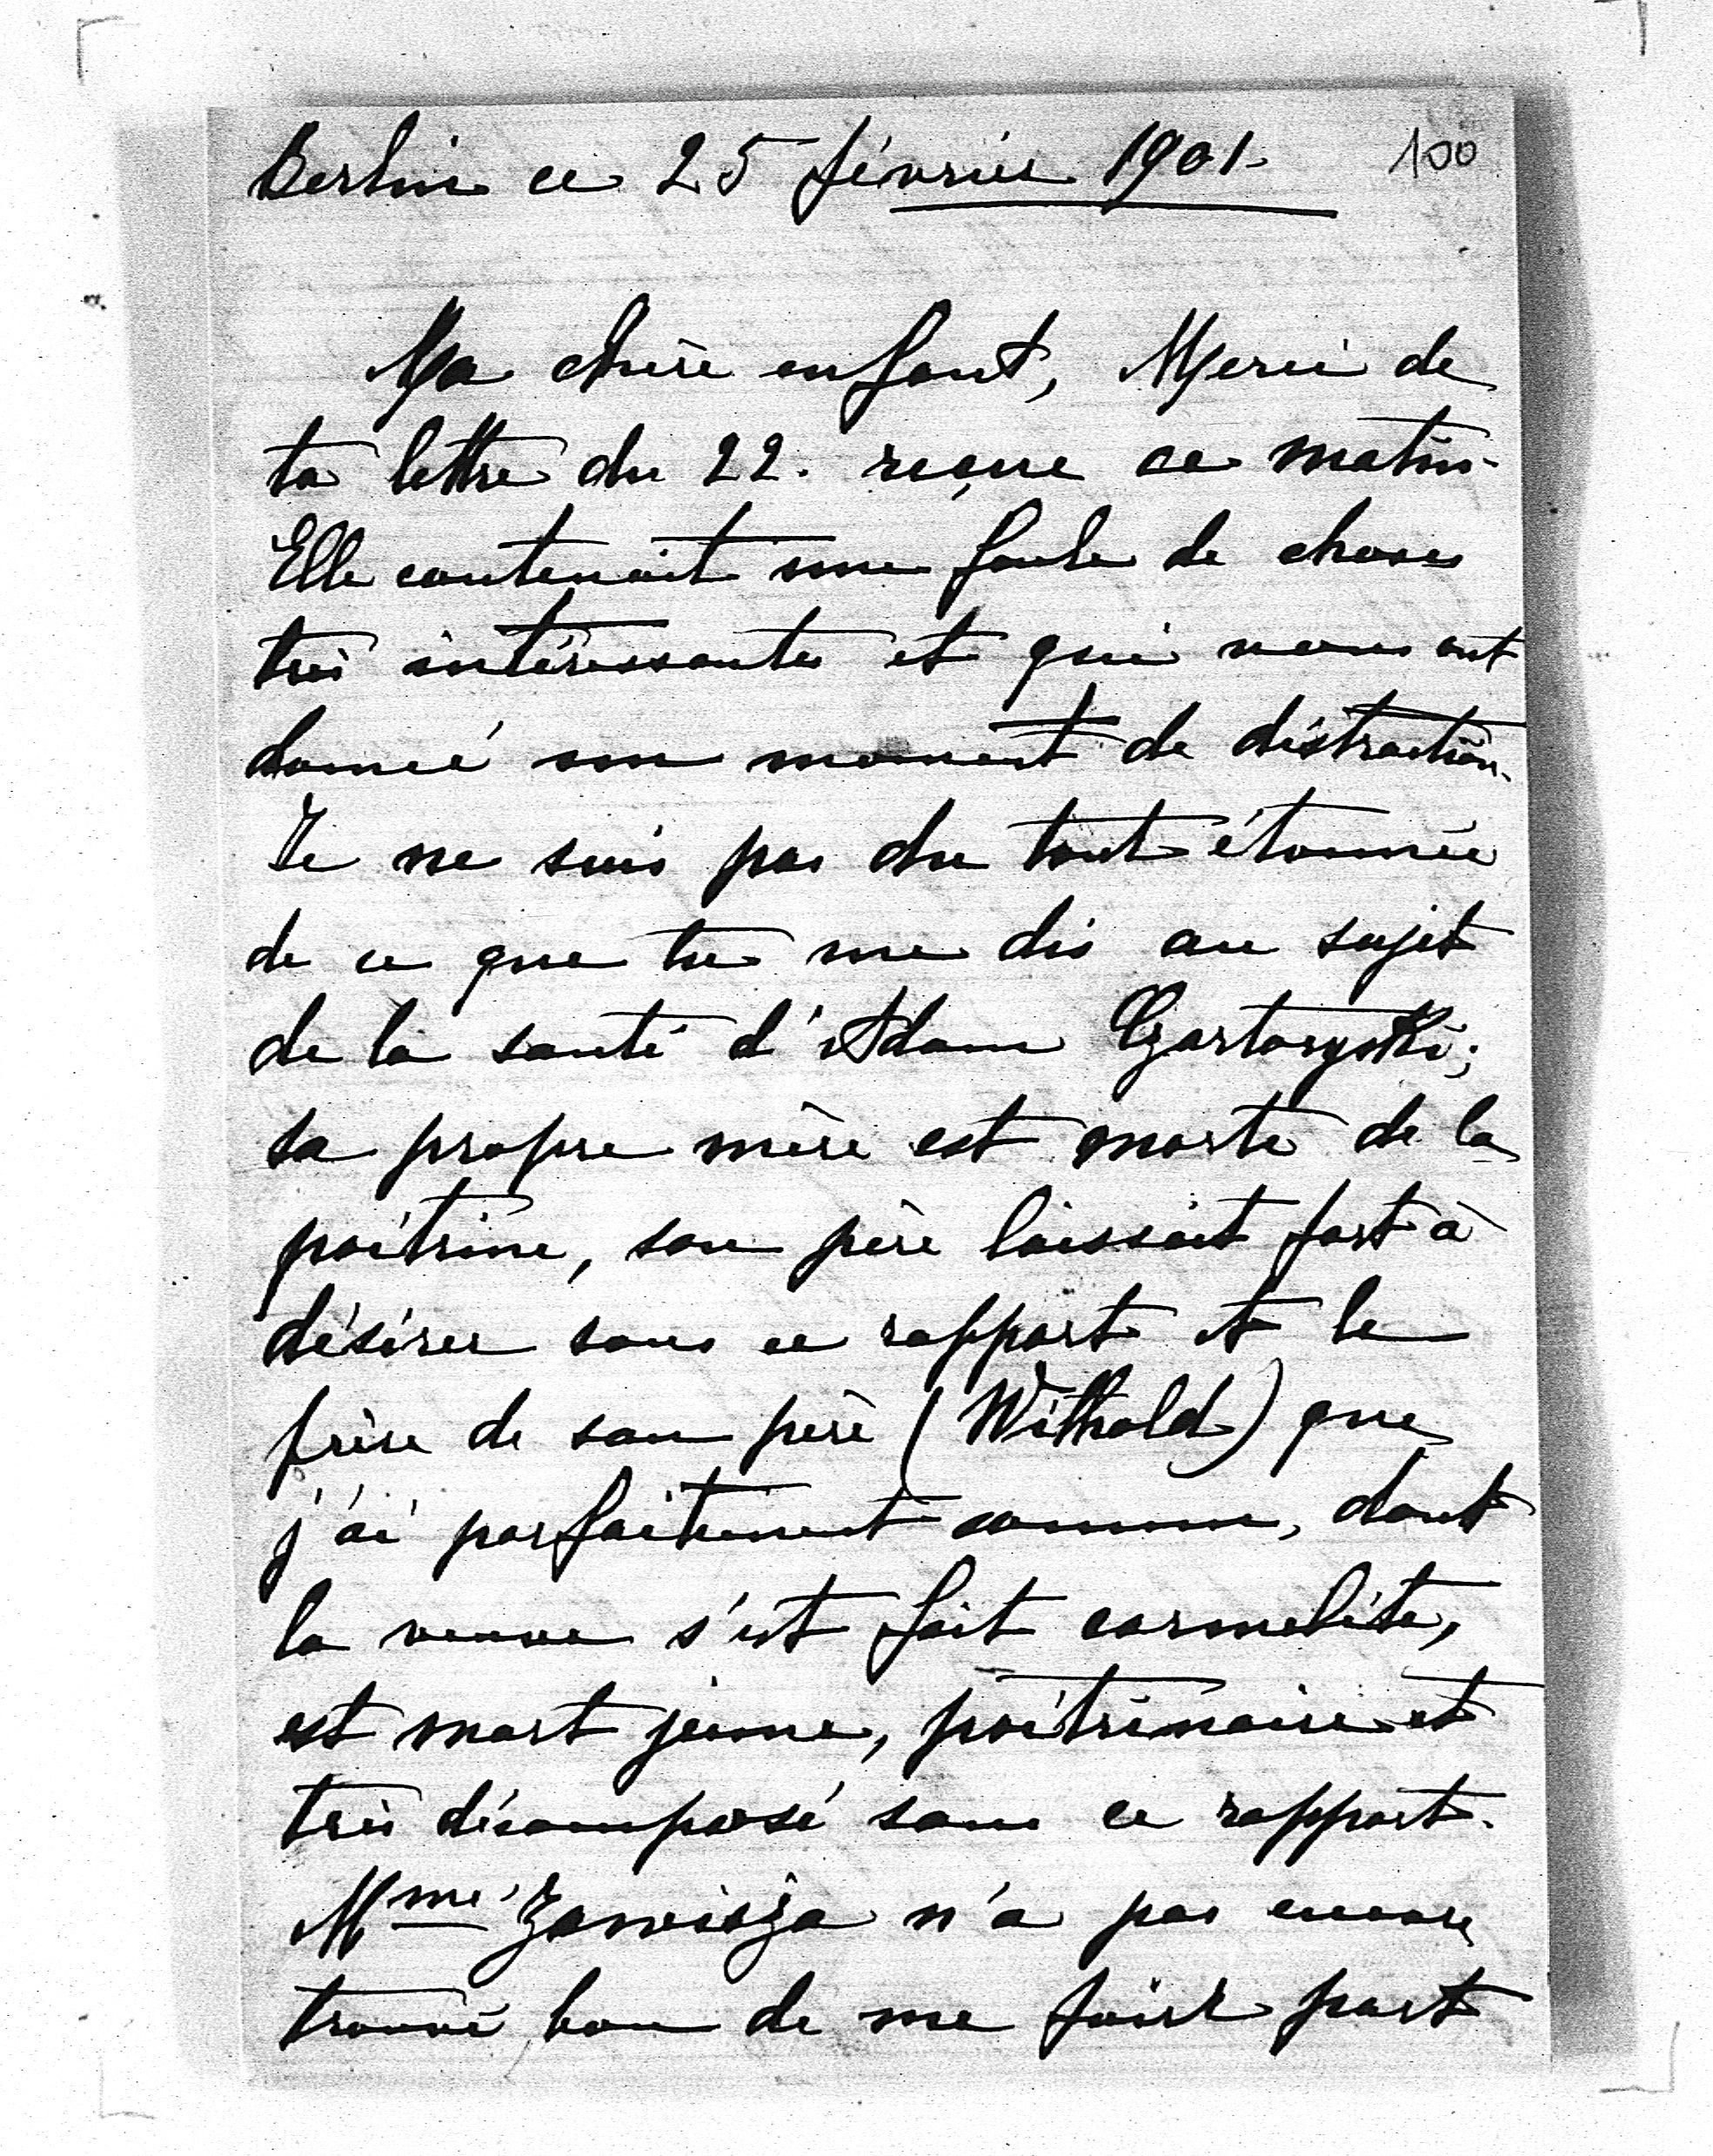 Berlin ce 25 février 1901.
100
Ma chère enfant, Merci de
ta lettre du 22. reçue ce matin.
Elle contenait une foule de choses
très intéressantes et qui nous ont
donné un moment de distraction.
Je ne suis pas du tout étonnée
de ce que tu me dis au sujet
de la santé d'Adam Czartoryski;
sa propre mère est morte de la
poitrine, son père laissait fort à
désirer sous ce rapport et le
frère de son père (Withold) que
j'ai parfaitement connu, dont
la veuve s'est fait carmelite,
est mort jeune, poitrinaire et
très décomposé sous ce rapport.
Mme Zawisza n'a pas encore
trouvé bon de me faire part